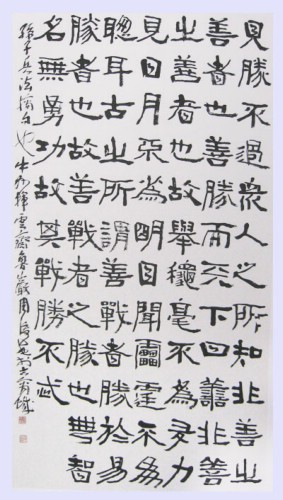 見勝不過眾人之所知非善之
善者也戰勝而天下曰善非善
之善者也故舉秋毫不為多力
見日月不為明目聞雷霆不為
聰耳古之所謂善戰者勝於易
勝者也故善戰者之勝也無智
名無勇功故其戰勝不忒
孫子兵法摘句